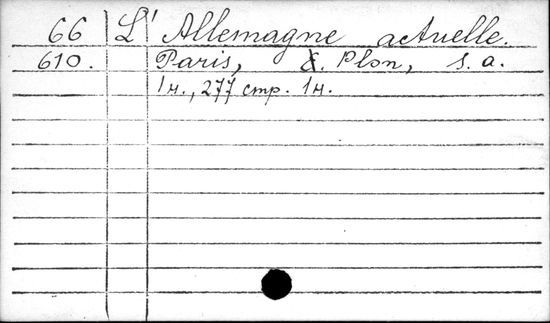 66 L'Allemagne actuelle.
610. Paris, Plon, s.a.
1 н., 277 стр. 1 н.